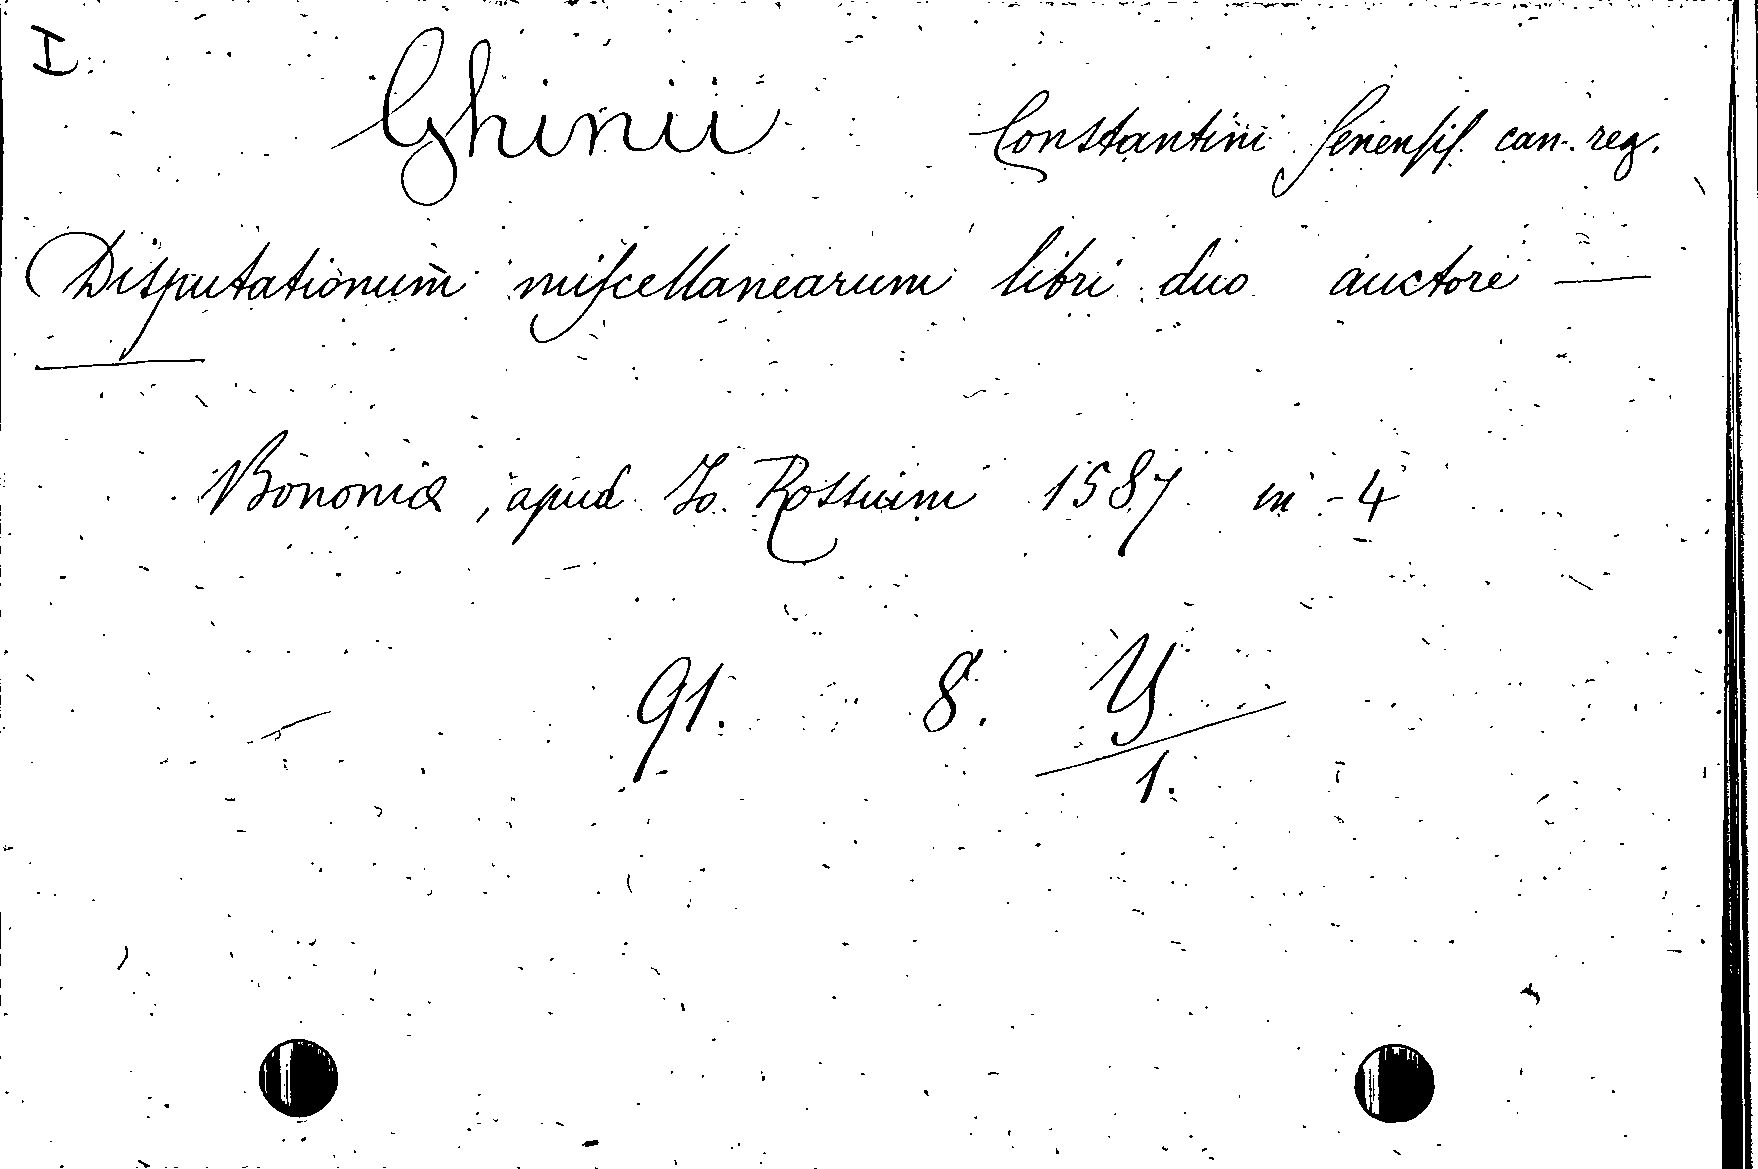 I
Ghinii Constantini ſenenſiſ can. reg.
Disputationum miſcellanearum libri duo auctore —
—
Bononiæ, apud Jo. Rossium 1587 in-4
91. 8. Y
1.